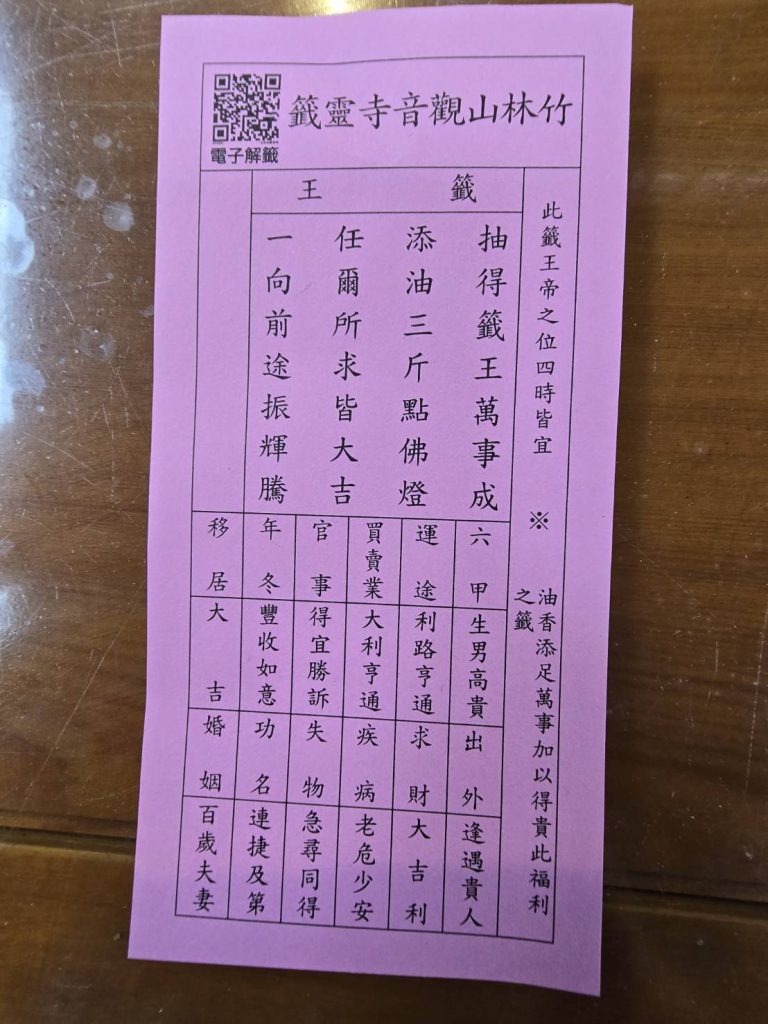 竹林山觀音寺靈籤
電子解籤
籤王
此籤王帝之位四時皆宜
※
油香添足萬事加以得貴此福利
之籤
抽得籤王萬事成
添油三斤點佛燈
任爾所求皆大吉
一向前途振輝騰
六甲
生男高貴
出外
逢遇貴人
運途
利路亨通
求財
大吉利
買賣業
大利亨通
疾病
老危少安
官事
得宜勝訴
失物
急尋同得
年冬
豐收如意
功名
連捷及第
移居
大吉
婚姻
百歲夫妻